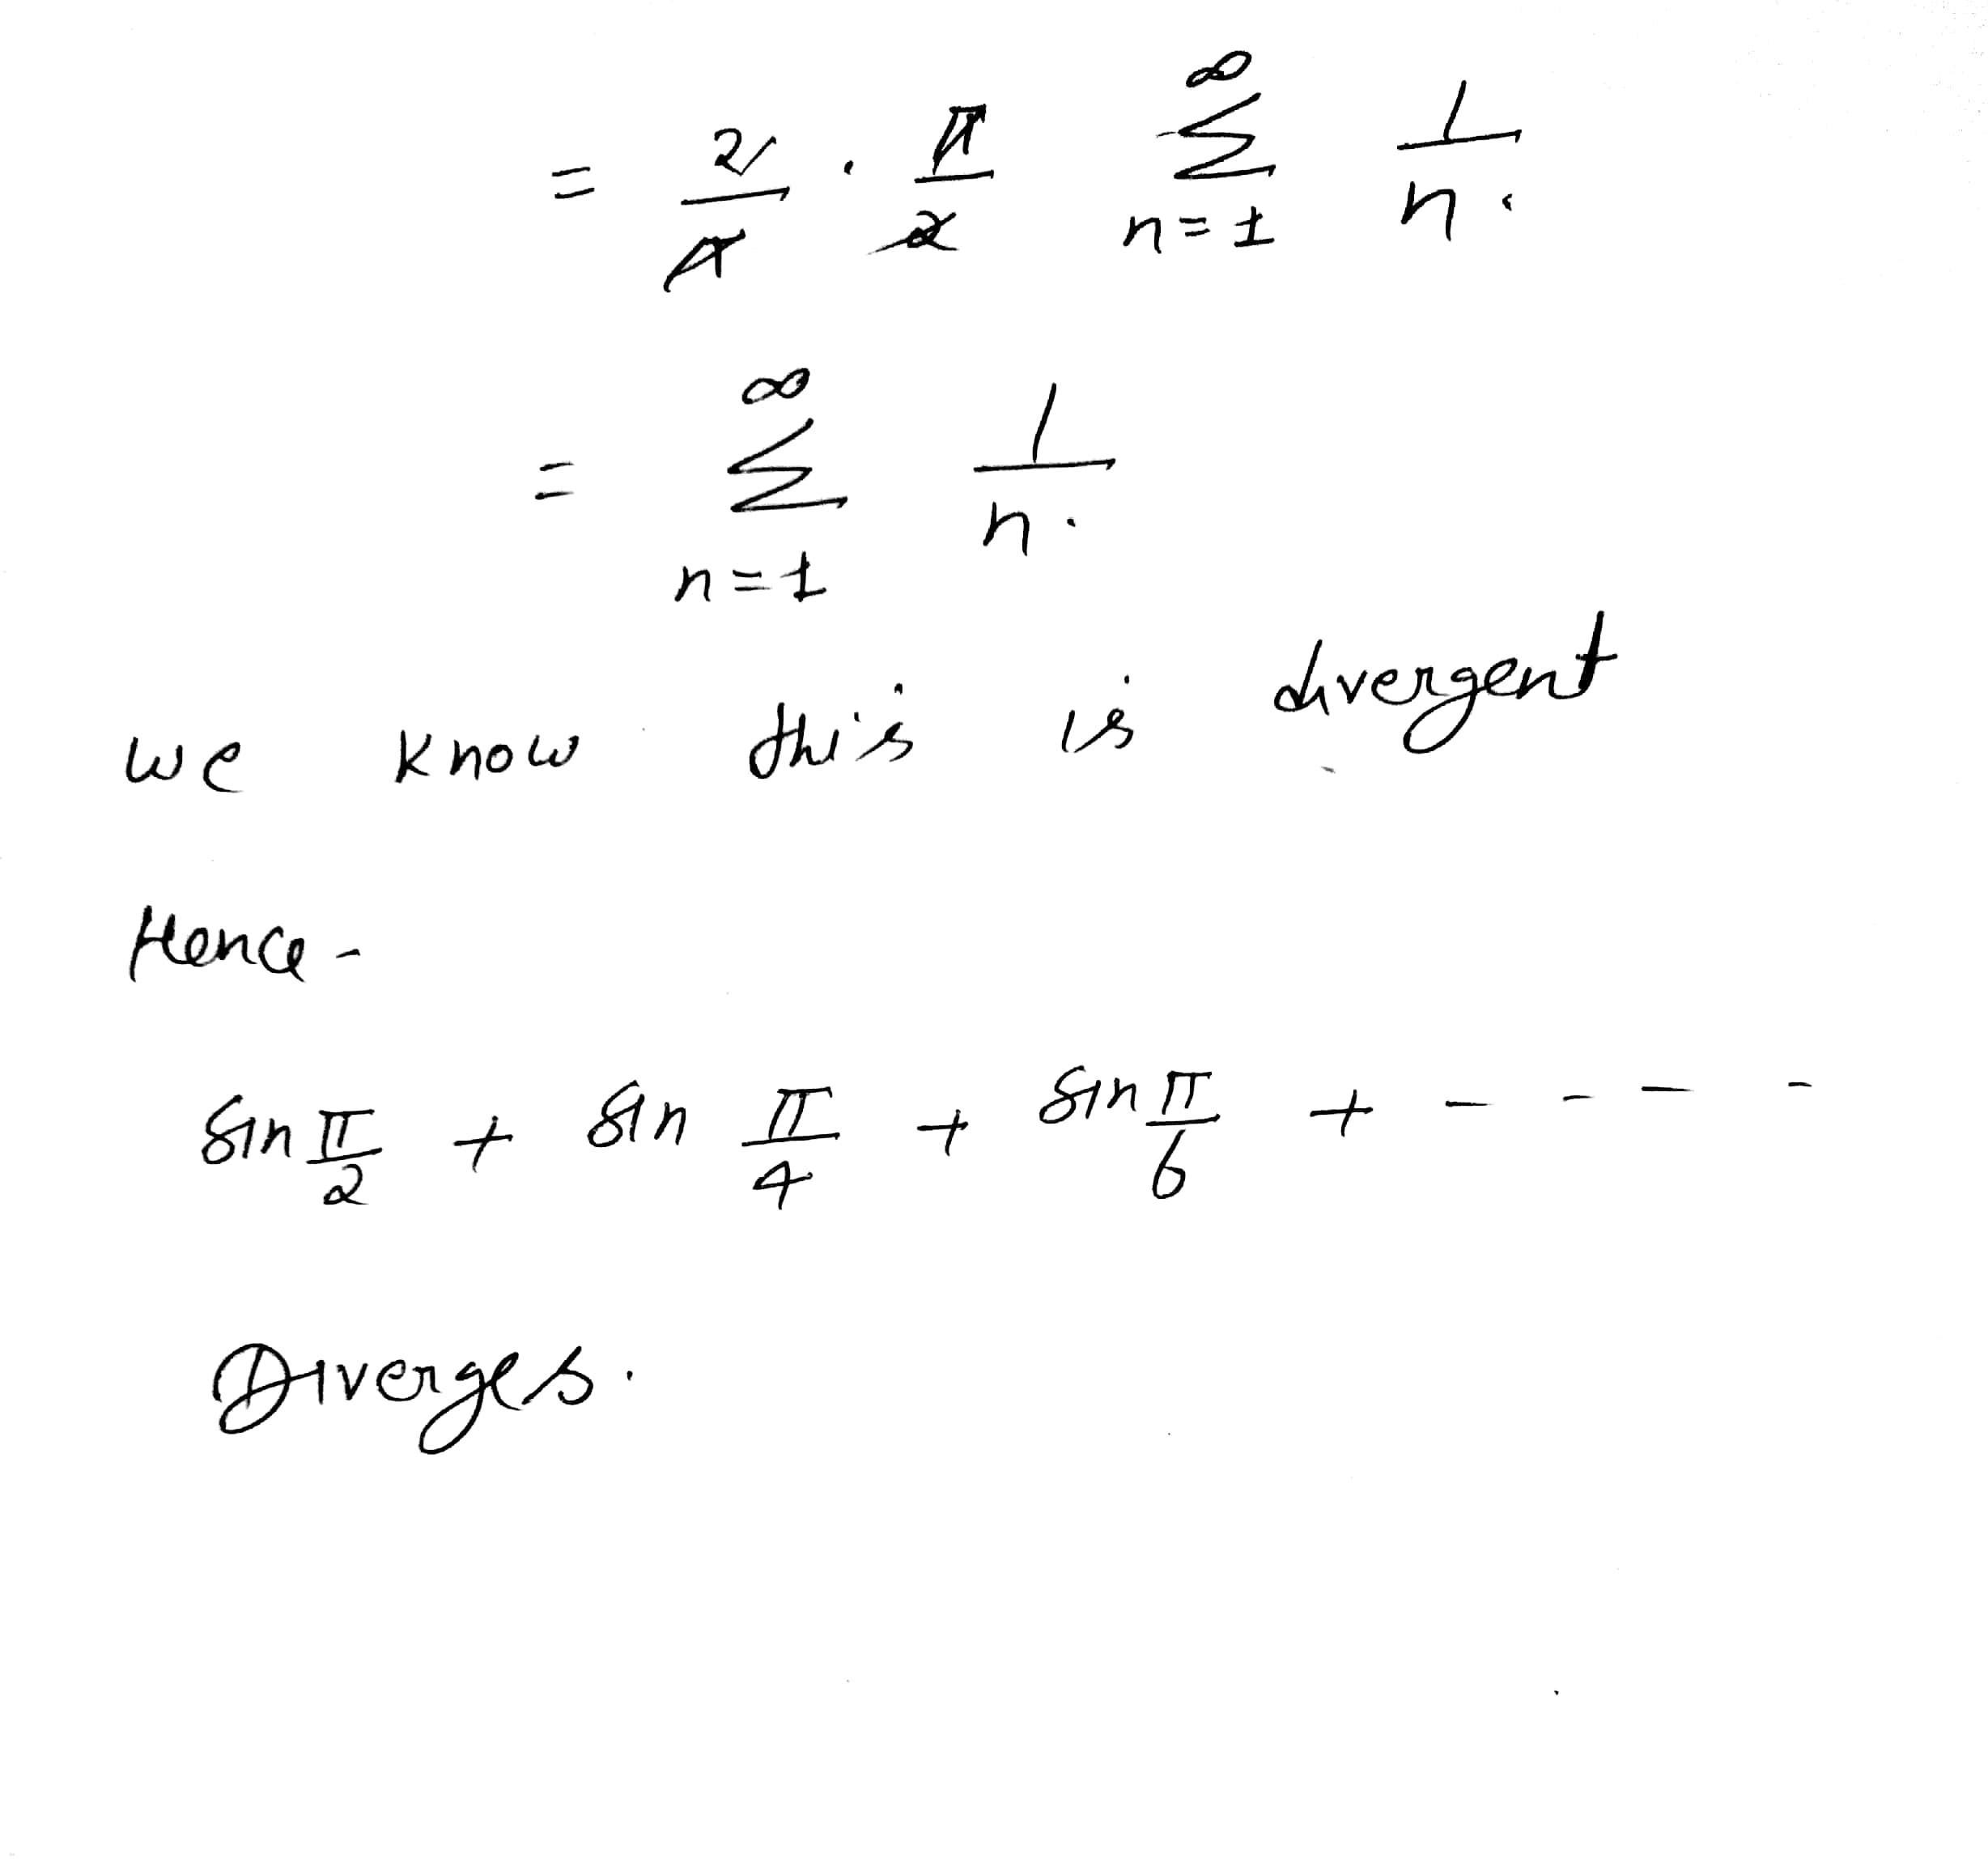 = 2/π · π/2 ∞∑n=1 1/n.
= ∞∑n=1 1/n.
we know this is divergent
Hence -
sin π/2 + sin π/4 + sin π/6 + - - - -
Diverges.